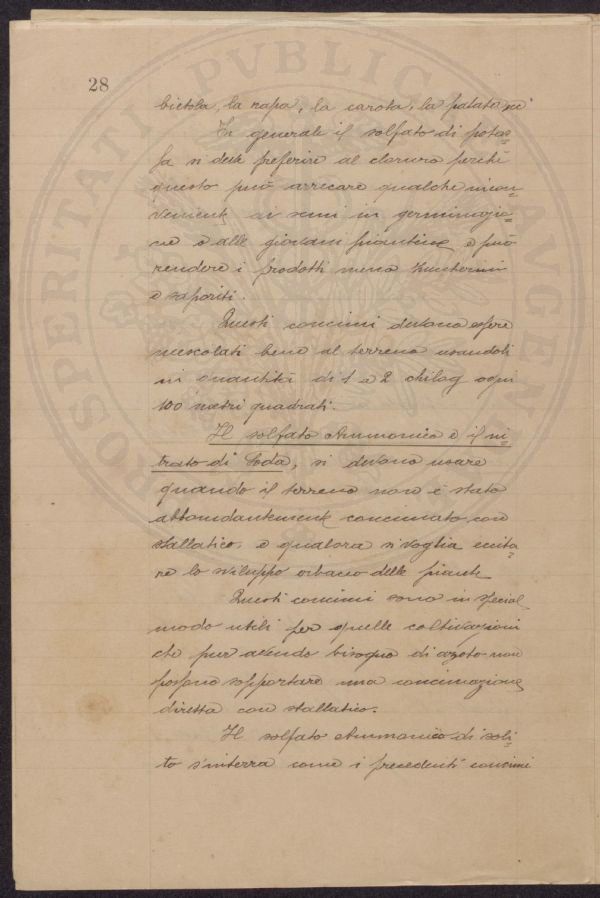 28
bietola, la rapa, la carota, la patata ecc
In generale il solfato di potas=
sa si deve preferire al cloruro perchè
questo può arrecare qualche incon=
venient ai semi in germinazio=
ne e alle giovani piantine e può
rendere i prodotti meno zuccherini
e saporiti.
Questi concimi devono essere
mescolati bene al terreno usandoli
in quantità di 1 a 2 chilog ogni
100 metri quadrati.
Il solfato Ammonico e il ni=
trato di Soda, si devono usare
quando il terreno non è stato
abbondantemente concimato con
stallatico, e qualora si voglia eccita=
re lo sviluppo erbaceo delle piante
Questi concimi sono in special
modo utili per quelle coltivazioni
che pur avendo bisogno di azoto non
possono sopportare una concimazione
diretta con stallatico.
Il solfato Ammonico di soli=
to s'interra come i precedenti concimi
PROSPERITATI PVBLICAE AVGENDAE